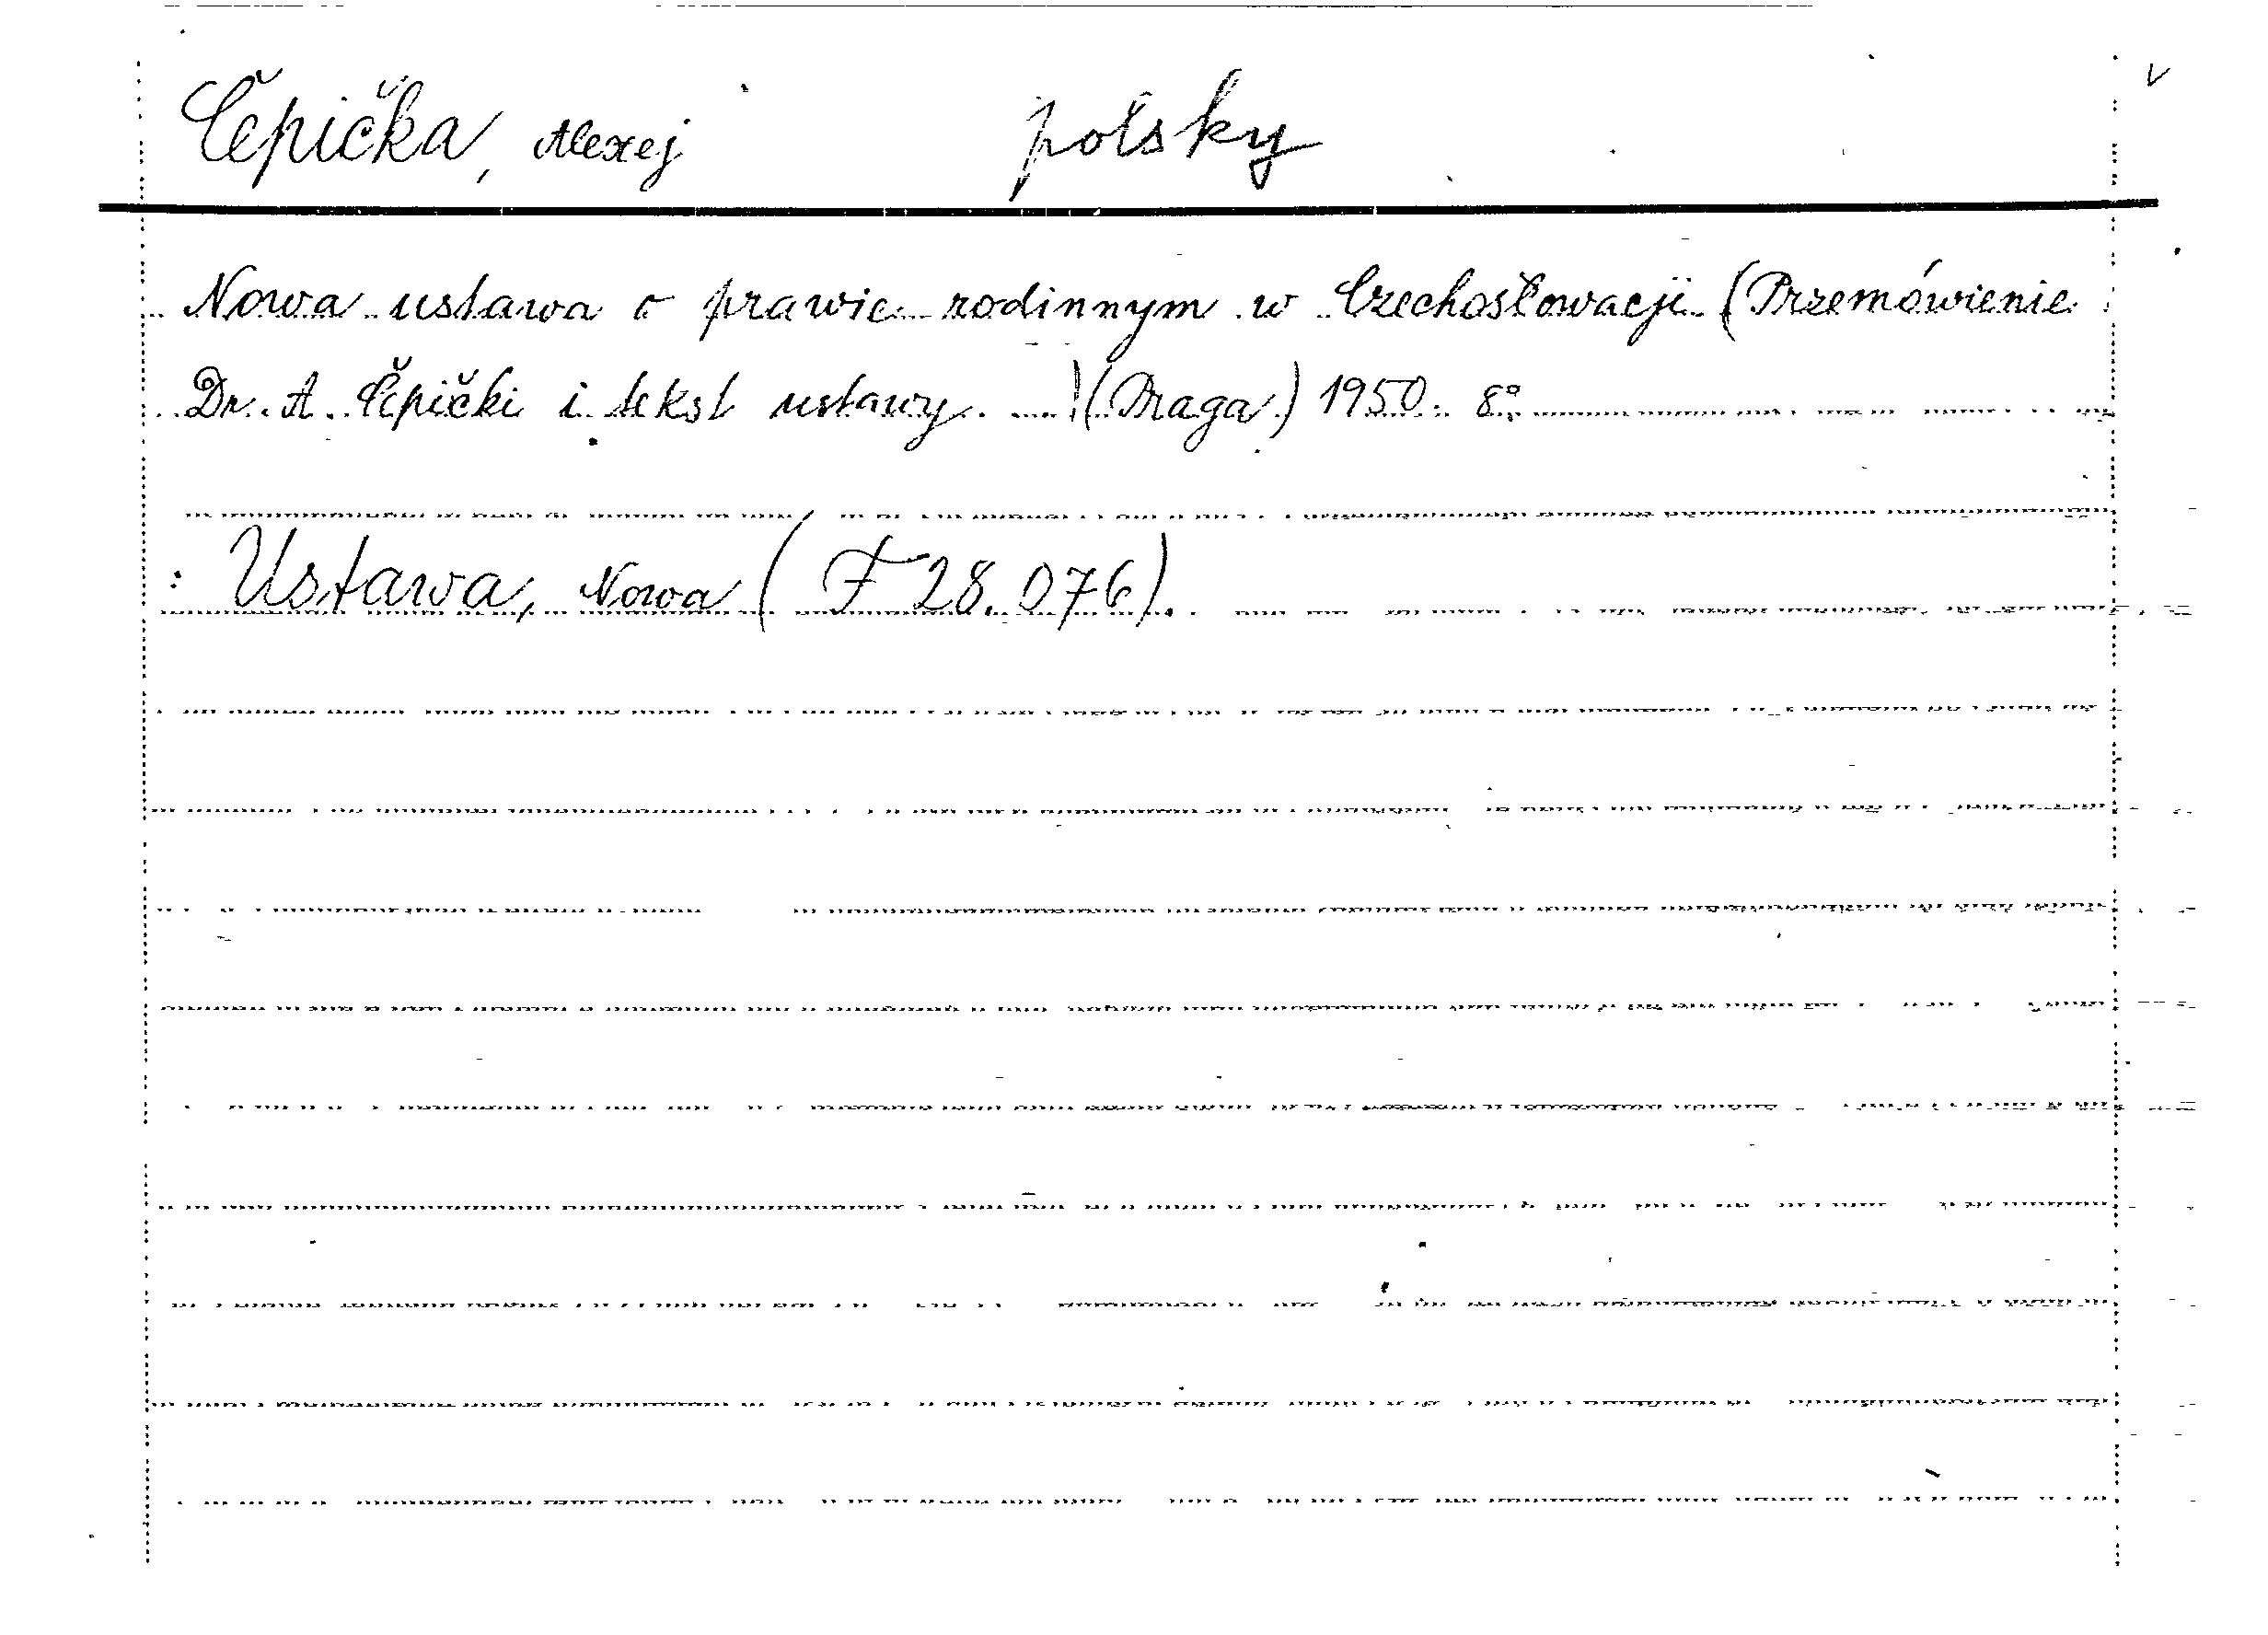 Čepička, Alexej polsky
Nowa ustawa o prawie rodinnym w Czechosłowacji (Przemówienie
Dr. A. Čepički i tekst ustawy. !(Praga) 1950. 8°.
: Ustawa, Nowa (F 28.076).